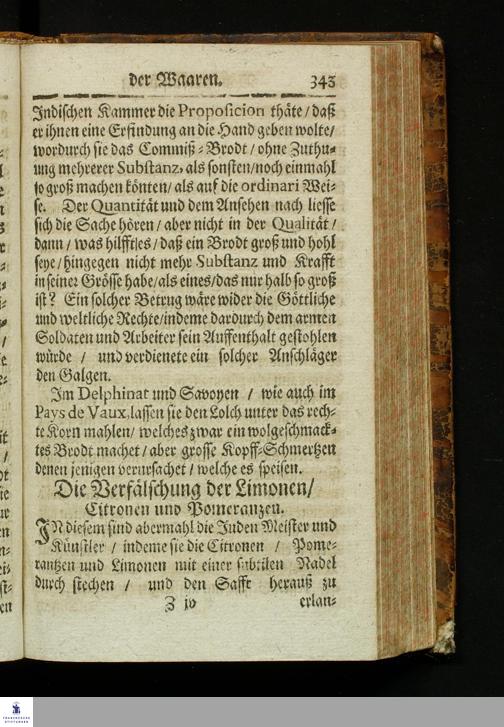 der Waaren. 343
Indischen Kammer die Proposicion thäte / daß
er ihnen eine Erfindung an die Hand geben wolte /
wordurch sie das Commiß = Brodt / ohne Zuthu=
ung mehrerer Substanz, als sonsten / noch einmahl
so groß machen könten / als auf die ordinari Wei=
se. Der Quantität und dem Ansehen nach liesse
sich die Sache hören / aber nicht in der Qualität /
dann / was hilfftes / daß ein Brodt groß und hohl
seye / hingegen nicht mehr Substanz und Krafft
in seiner Grösse habe / als eines / das nur halb so groß
ist? Ein solcher Betrug wäre wider die Göttliche
und weltliche Rechte / indeme dardurch dem armen
Soldaten und Arbeiter sein Auffenthalt gestohlen
würde / und verdienete ein solcher Anschläger
den Galgen.
Im Delphinat und Savoyen / wie auch im
Pays de Vaux, lassen sie den Lolch unter das rech=
te Korn mahlen / welches zwar ein wolgeschmack=
tes Brodt machet / aber grosse Kopff=Schmertzen
denen jenigen verursachet / welche es speisen.
Die Verfälschung der Limonen /
Citronen und Pomeranzen.
IN diesem sind abermahl die Juden Meister und
Künstler / indeme sie die Citronen / Pome=
rantzen und Limonen mit einer subtilen Nadel
durch stechen / und den Safft herauß zu
Z iv erlan=
FRANCKESCHE
STIFTUNGEN